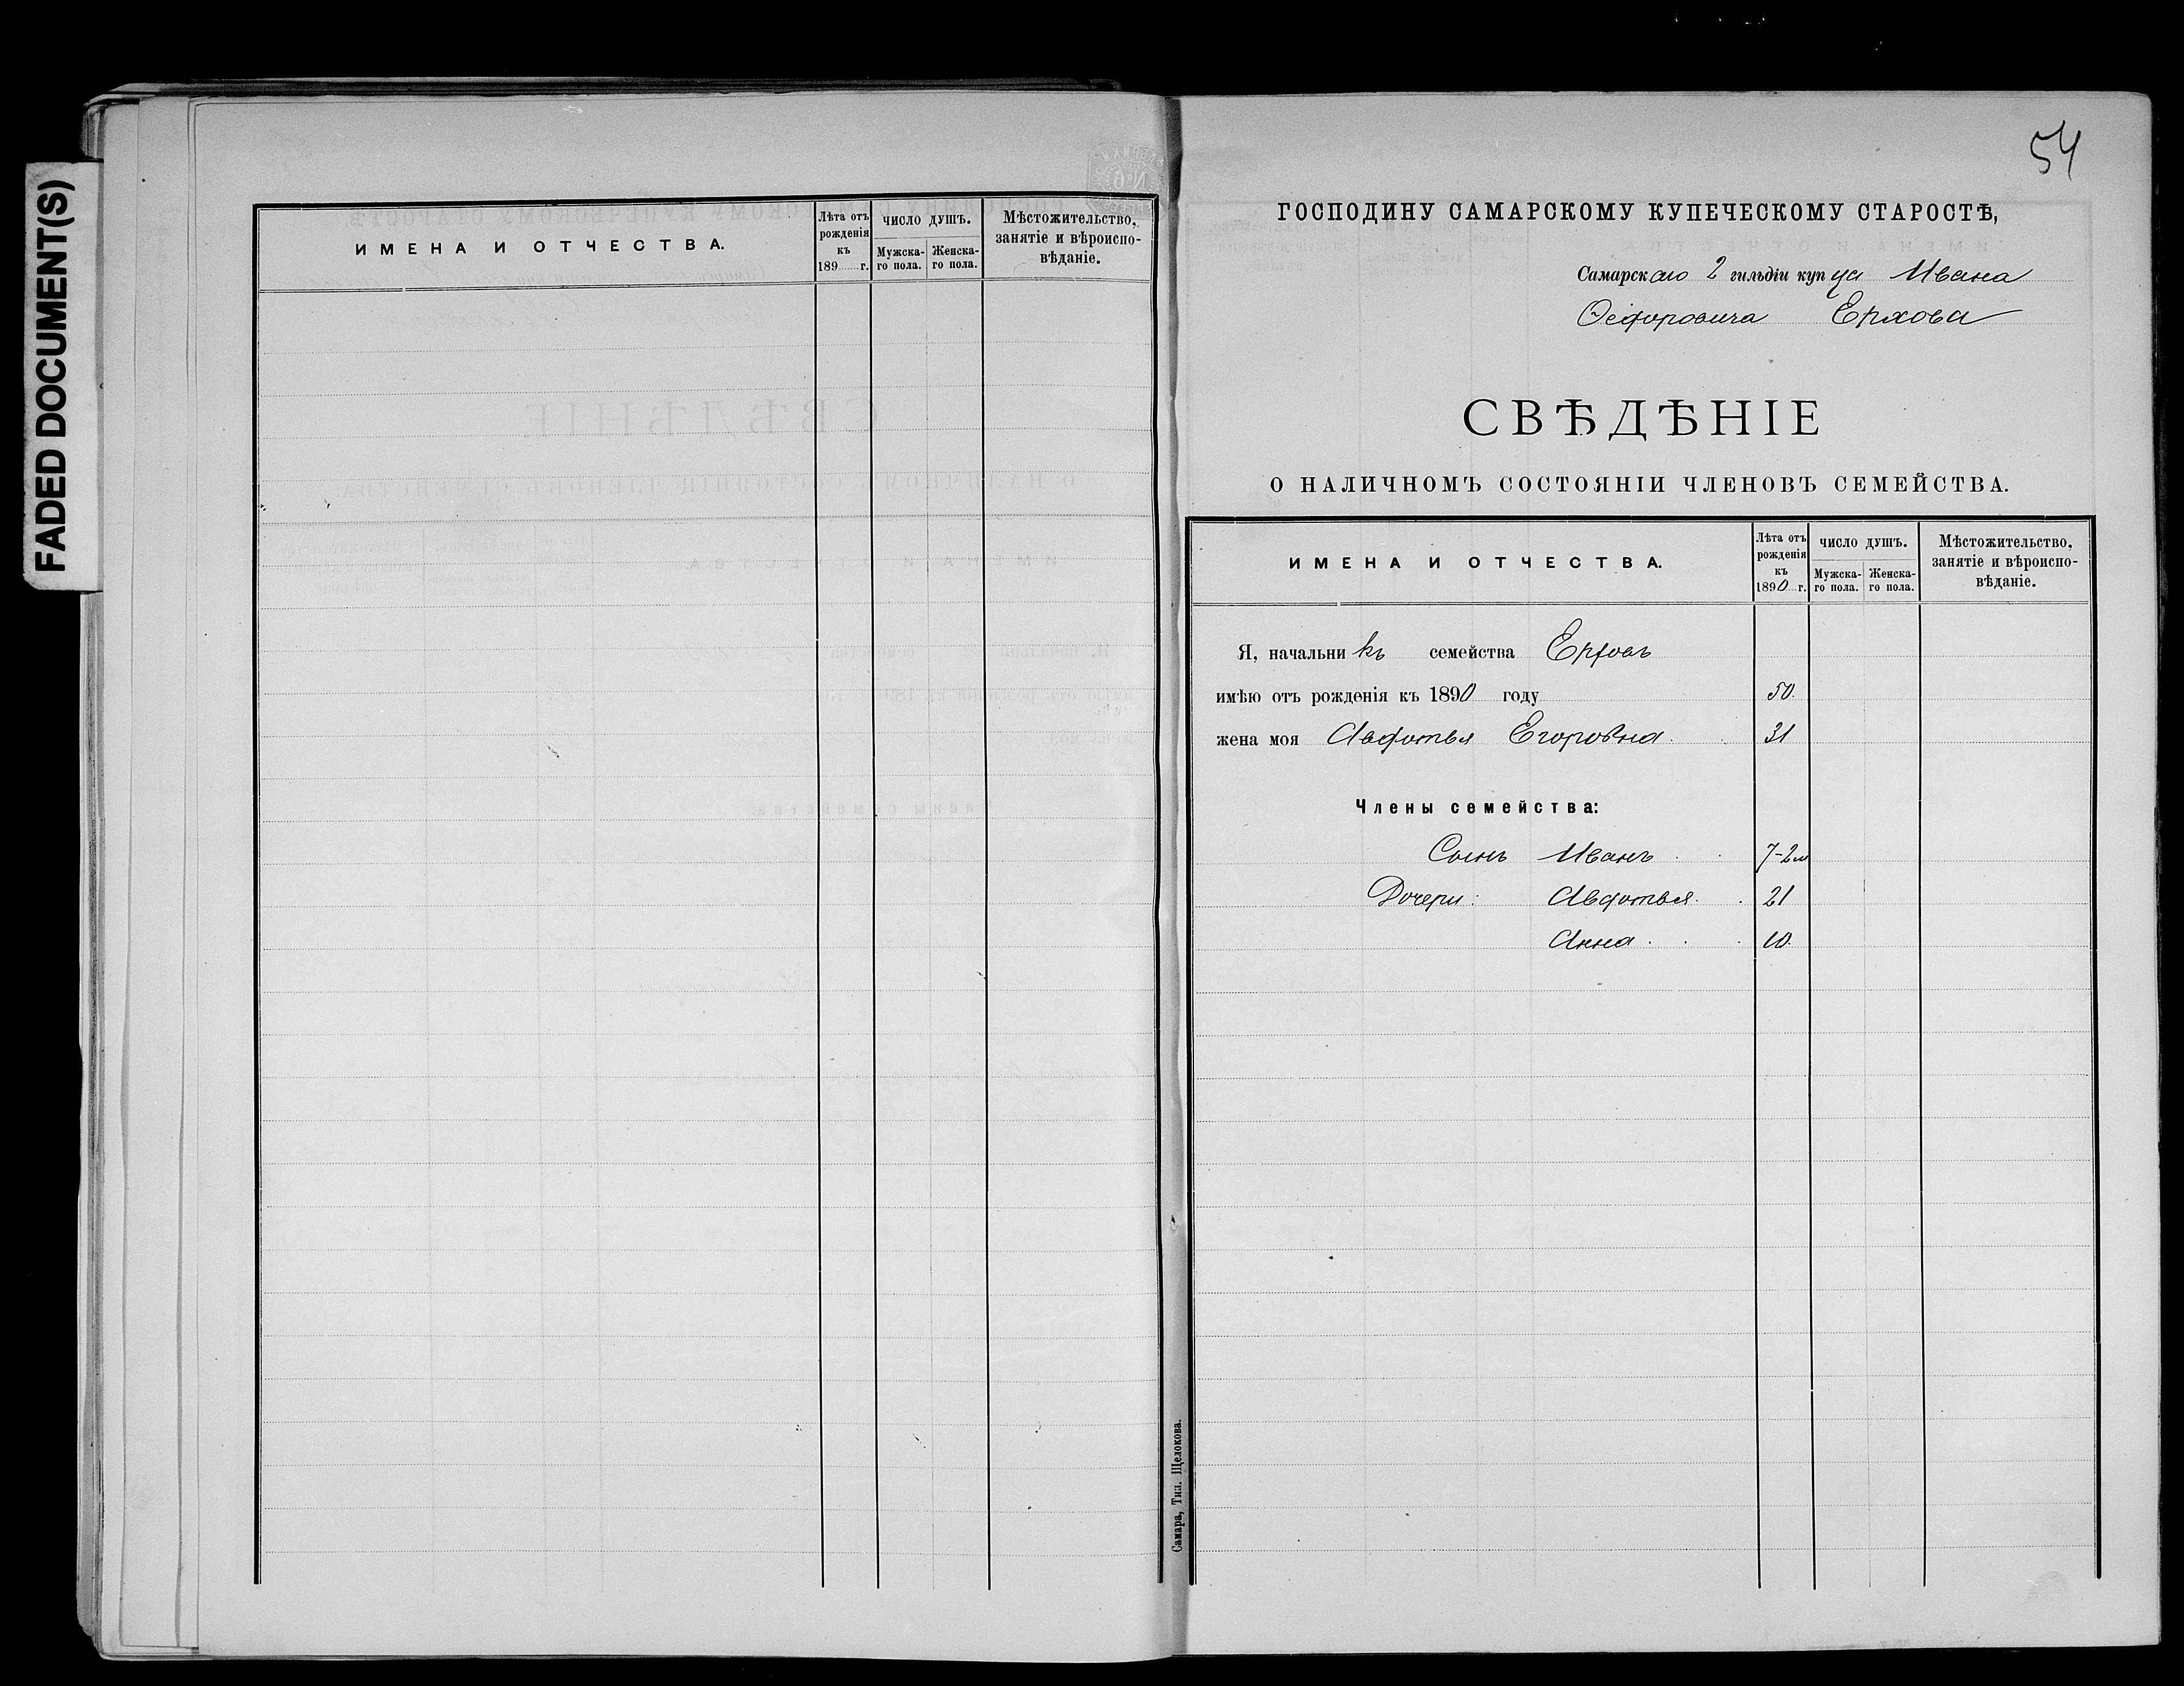 FADED DOCUMENT(S)
ИМЕНА И ОТЧЕСТВА.
Лѣта отъ рожденія къ 189 г.
ЧИСЛО ДУШЪ.
Мужска-го пола.
Женска-го пола.
Мѣстожительство, занятіе и вѣроиспо-вѣданіе.
54
ГОСПОДИНУ САМАРСКОМУ КУПЕЧЕСКОМУ СТАРОСТѢ,
Самарскаго 2 гильдіи купца Ивана
Ѳедоровича Ерхова
СВѢДѢНІЕ
О НАЛИЧНОМЪ СОСТОЯНІИ ЧЛЕНОВЪ СЕМЕЙСТВА.
ИМЕНА И ОТЧЕСТВА.
Лѣта отъ рожденія къ 1890 г.
ЧИСЛО ДУШЪ.
Мужска-го пола.
Женска-го пола.
Мѣстожительство, занятіе и вѣроиспо-вѣданіе.
Я, начальникъ семейства Ерховъ
имѣю отъ рожденія къ 1890 году 50.
жена моя Авдотья Егоровна. 31
Члены семейства:
Сынъ Иванъ 7-2м
Дочери: Авдотья. 21
Анна. 10.
Самара, Тип. Щелокова.